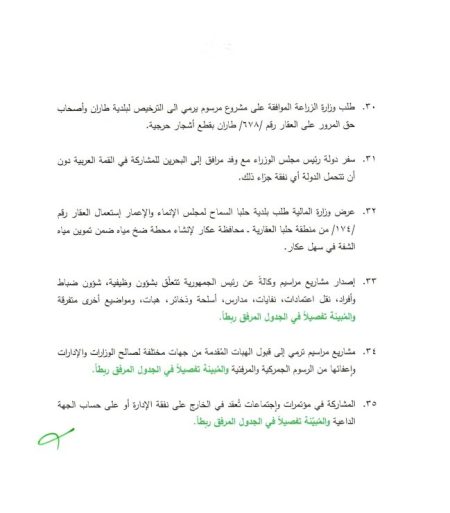 ٣٠. طلب وزارة الزراعة الموافقة على مشروع مرسوم يرمي الى الترخيص لبلدية طاران وأصحاب
حق المرور على العقار رقم /٦٧٨/ طاران بقطع أشجار حرجية.
٣١. سفر دولة رئيس مجلس الوزراء مع وفد مرافق إلى البحرين للمشاركة في القمة العربية دون
أن تتحمل الدولة أي نفقة جزاء ذلك.
٣٢. عرض وزارة المالية طلب بلدية حلبا السماح لمجلس الإنماء والإعمار إستعمال العقار رقم
/١٧٤/ من منطقة حلبا العقارية ـ محافظة عكار لإنشاء محطة ضخ مياه ضمن تموين مياه
الشفة في سهل عكار.
٣٣. إصدار مشاريع مراسيم وكالةً عن رئيس الجمهورية تتعلّق بشؤون وظيفية، شؤون ضباط
وأفراد، نقل اعتمادات، نفايات، مدارس، أسلحة وذخائر، هبات، ومواضيع أخرى متفرقة
والمُبينة تفصيلاً في الجدول المرفق ربطاً.
٣٤. مشاريع مراسيم ترمي إلى قبول الهبات المُقدمة من جهات مختلفة لصالح الوزارات والإدارات
وإعفائها من الرسوم الجمركية والمرفئية والمُبينة تفصيلاً في الجدول المرفق ربطاً.
٣٥. المشاركة في مؤتمرات وإجتماعات تُعقد في الخارج على نفقة الإدارة أو على حساب الجهة
الداعية والمُبيّنة تفصيلاً في الجدول المرفق ربطاً.